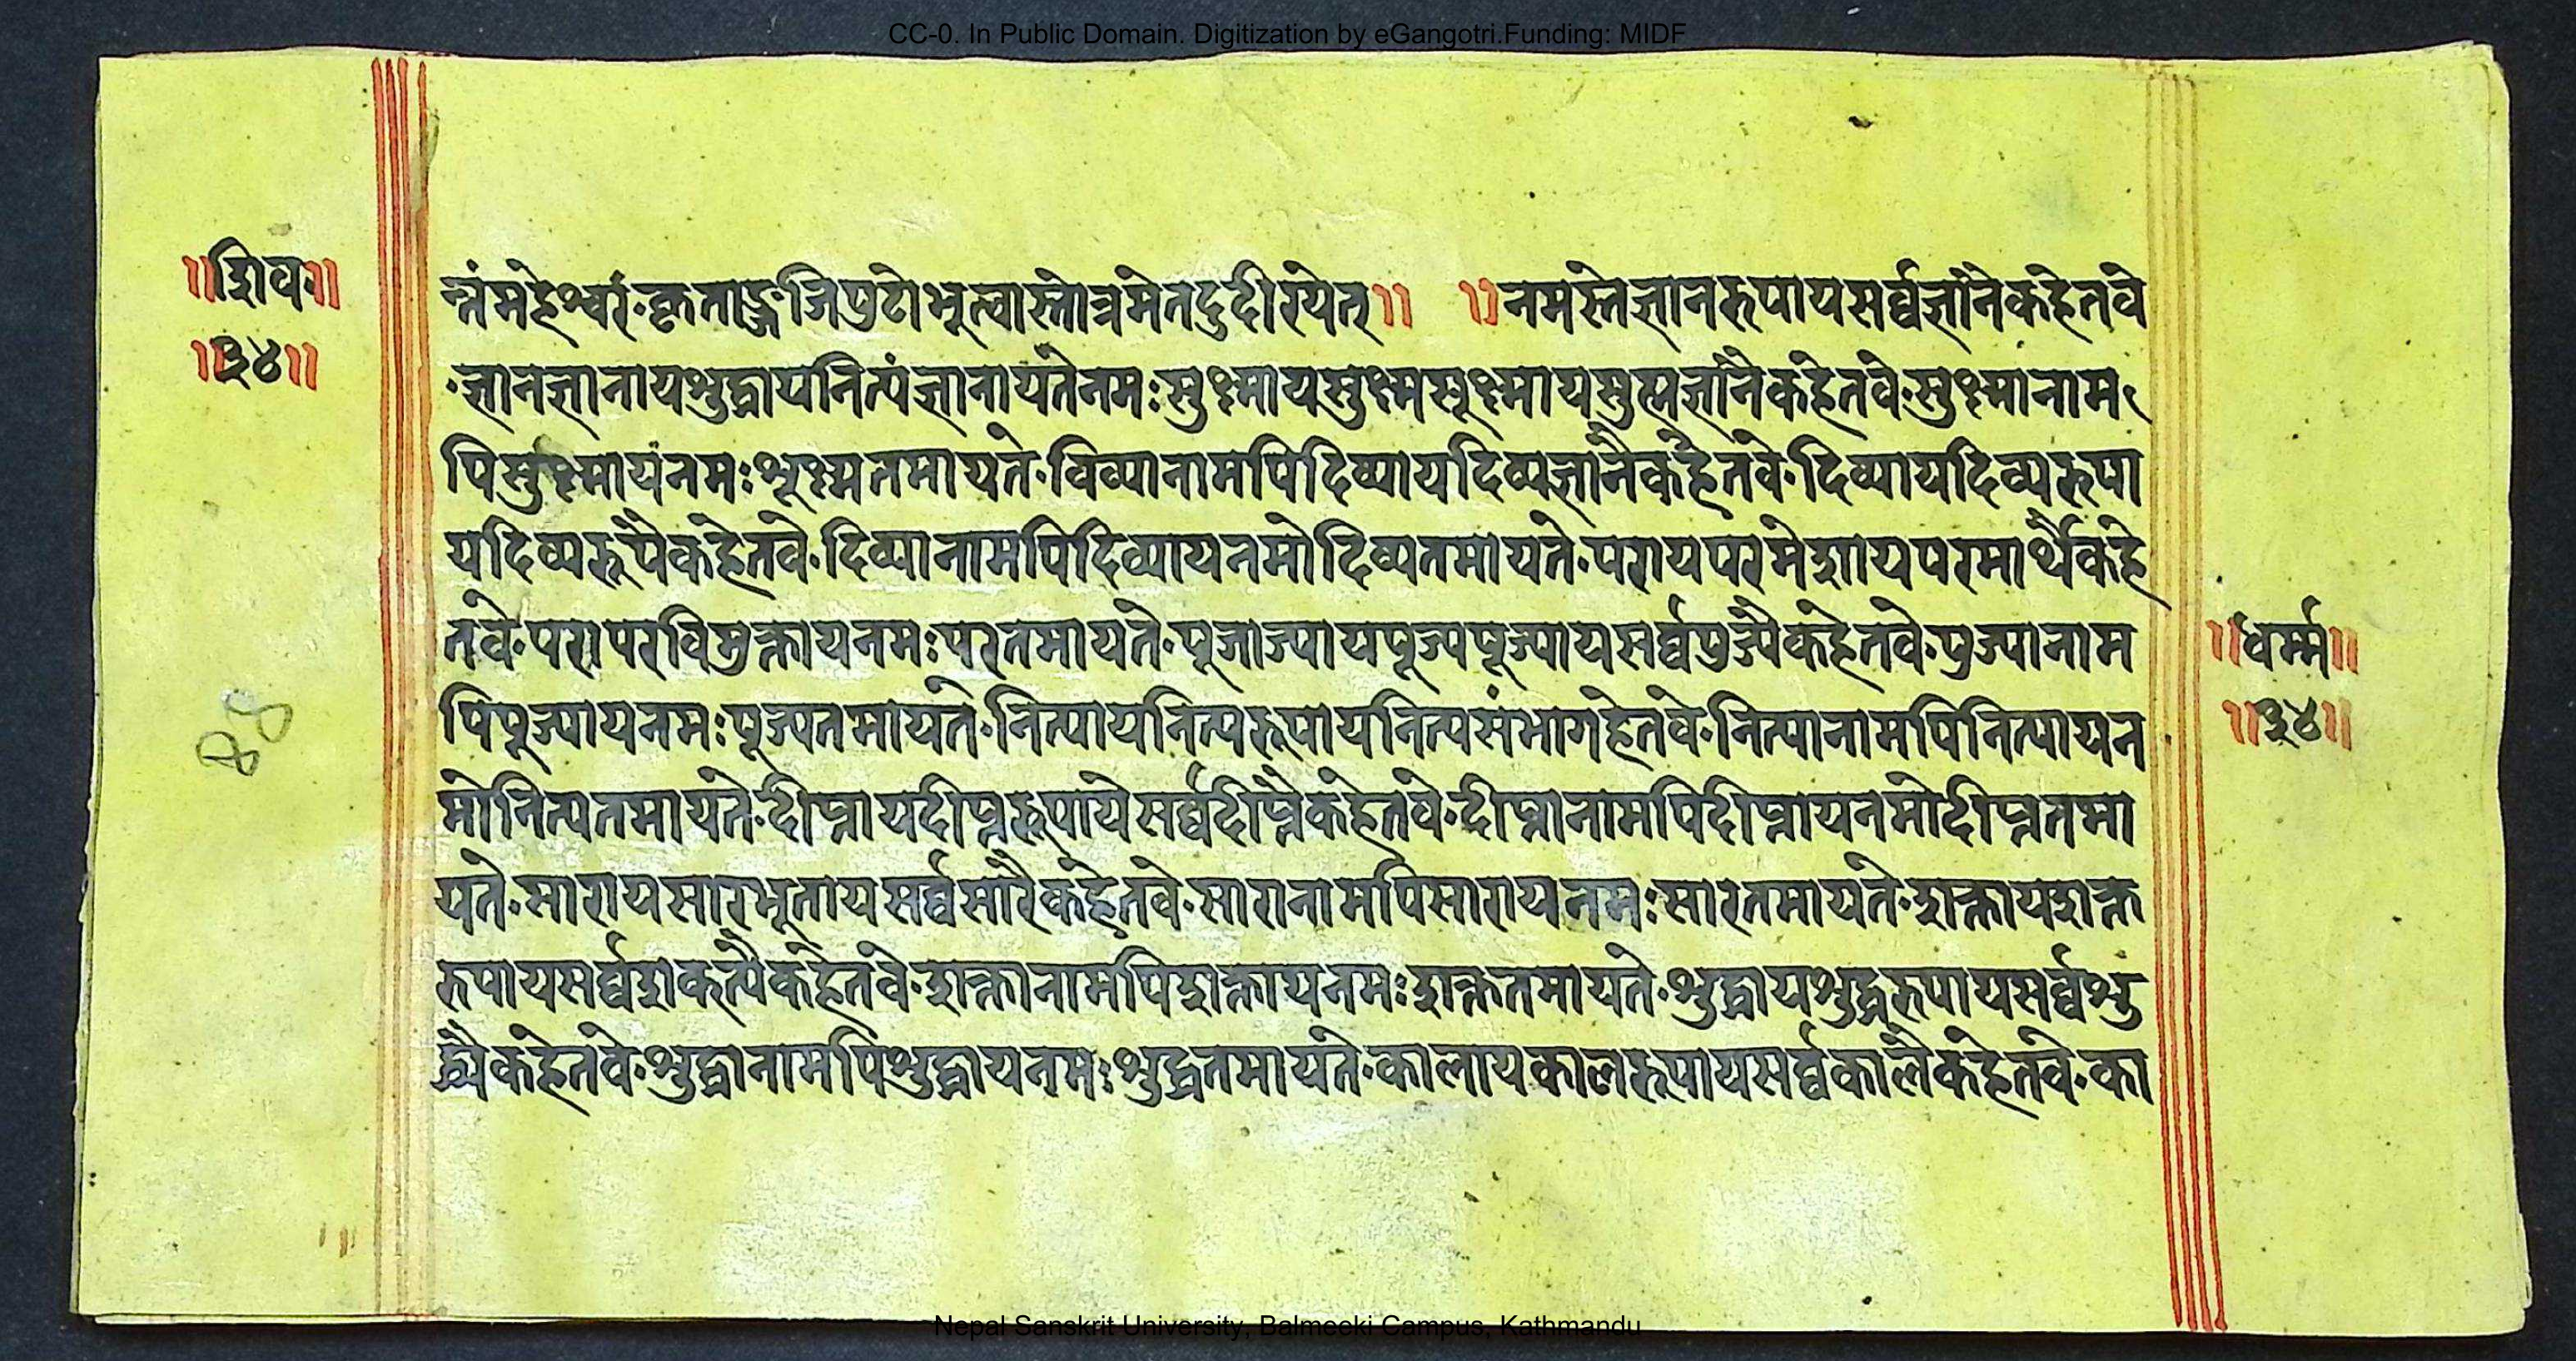 CC-0. In Public Domain. Digitization by eGangotri.Funding: MIDF
॥शिव॥
॥३४॥
न्तंमहेश्वरं·कृताञ्जलिपुटोभूत्वास्तोत्रमेतदुदीरयेत्॥ ॥नमस्तेज्ञानरुपायसर्व्वज्ञानैकहेतवे
·ज्ञानज्ञानायशुद्धायनित्यंज्ञानायतेनमःसुक्ष्मायसुक्ष्मसूक्ष्मायसुक्ष्मज्ञानैकहेतवे·सुक्ष्मानाम
पिसुक्ष्मायनमःशूक्ष्मतमायते·विव्यानामपिदिव्यायदिव्यज्ञानैकहेतवे·दिव्यायदिव्यरुपा
यदिव्यरूपैकहेतवे·दिव्यानामपिदिव्यायनमोदिव्यतमायते·परायपरमेशायपरमार्थैकहे
तवे·परापरविमुक्तायनमःपरतमायते·पूजाज्यायपूज्यपूज्यायसर्व्वपुज्यैकहेतवे·पुज्यानाम
पिपूज्यायनमःपूज्यतमायते·नित्यायनित्यरूपायनित्यसंभागहेतवे·नित्यानामपिनित्यायन
मोनित्यतमायते·दीप्तायदीप्तरूपायेसर्व्वदीप्तैकहेतवे·दीप्तानामपिदीप्तायनमोदीप्ततमा
यते·सारायसारभूतायसर्व्वसारैकहेतवे·सारानामपिसारायनमःसारतमायते·शक्तायशक्त
रुपायसर्व्वशकत्यैकहेतवे·शक्तानामपिशक्तायनमःशक्ततमायते·शुद्धायशुद्धरुपायसर्व्वशु
द्ध्यैकहेतवे·शुद्धानामपिशुद्धायनमःशुद्धतमायते·कालायकालरूपायसर्व्वकालैकहेतवे·का
॥धर्म्म॥
॥३४॥
Nepal Sanskrit University, Balmeeki Campus, Kathmandu